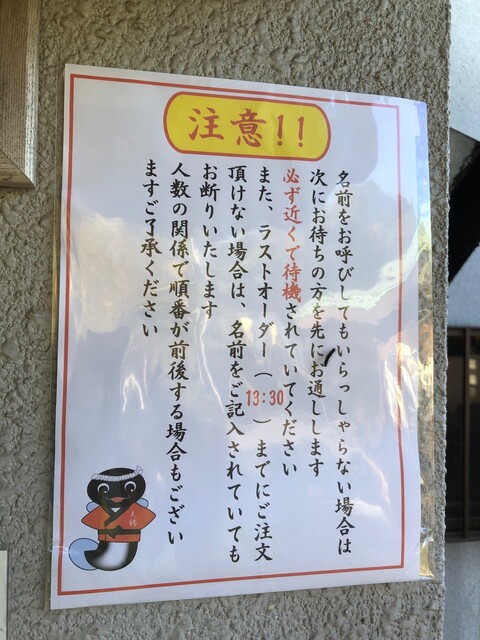 注意!!
名前をお呼びしてもいらっしゃらない場合は
次にお待ちの方を先にお通しします
必ず近くで待機されていてください
また、ラストオーダー（13:30）までにご注文
頂けない場合は、名前をご記入されていても
お断りいたします
人数の関係で順番が前後する場合もござい
ますご了承ください